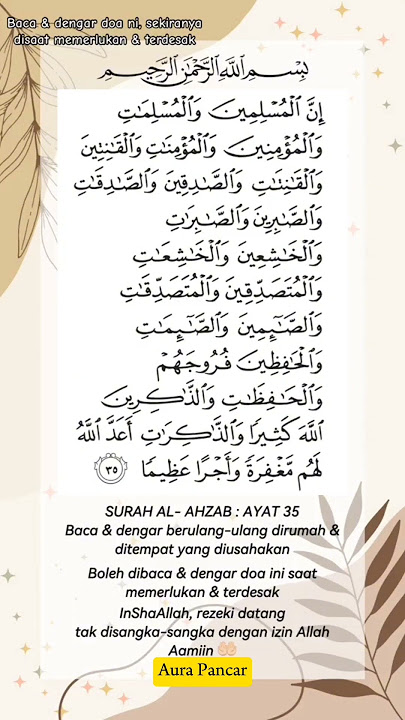 Baca & dengar doa ni, sekiranya
disaat memerlukan & terdesak
بِسْمِ ٱللَّهِ ٱلرَّحْمَٰنِ ٱلرَّحِيمِ
إِنَّ ٱلْمُسْلِمِينَ وَٱلْمُسْلِمَٰتِ
وَٱلْمُؤْمِنِينَ وَٱلْمُؤْمِنَٰتِ وَٱلْقَٰنِتِينَ
وَٱلْقَٰنِتَٰتِ وَٱلصَّٰدِقِينَ وَٱلصَّٰدِقَٰتِ
وَٱلصَّٰبِرِينَ وَٱلصَّٰبِرَٰتِ
وَٱلْخَٰشِعِينَ وَٱلْخَٰشِعَٰتِ
وَٱلْمُتَصَدِّقِينَ وَٱلْمُتَصَدِّقَٰتِ
وَٱلصَّٰٓئِمِينَ وَٱلصَّٰٓئِمَٰتِ
وَٱلْحَٰفِظِينَ فُرُوجَهُمْ
وَٱلْحَٰفِظَٰتِ وَٱلذَّٰكِرِينَ
ٱللَّهَ كَثِيرًا وَٱلذَّٰكِرَٰتِ أَعَدَّ ٱللَّهُ
لَهُم مَّغْفِرَةً وَأَجْرًا عَظِيمًا ٣٥
SURAH AL- AHZAB : AYAT 35
Baca & dengar berulang-ulang dirumah &
ditempat yang diusahakan
Boleh dibaca & dengar doa ini saat
memerlukan & terdesak
InShaAllah, rezeki datang
tak disangka-sangka dengan izin Allah
Aamiin 🤲🏻
Aura Pancar